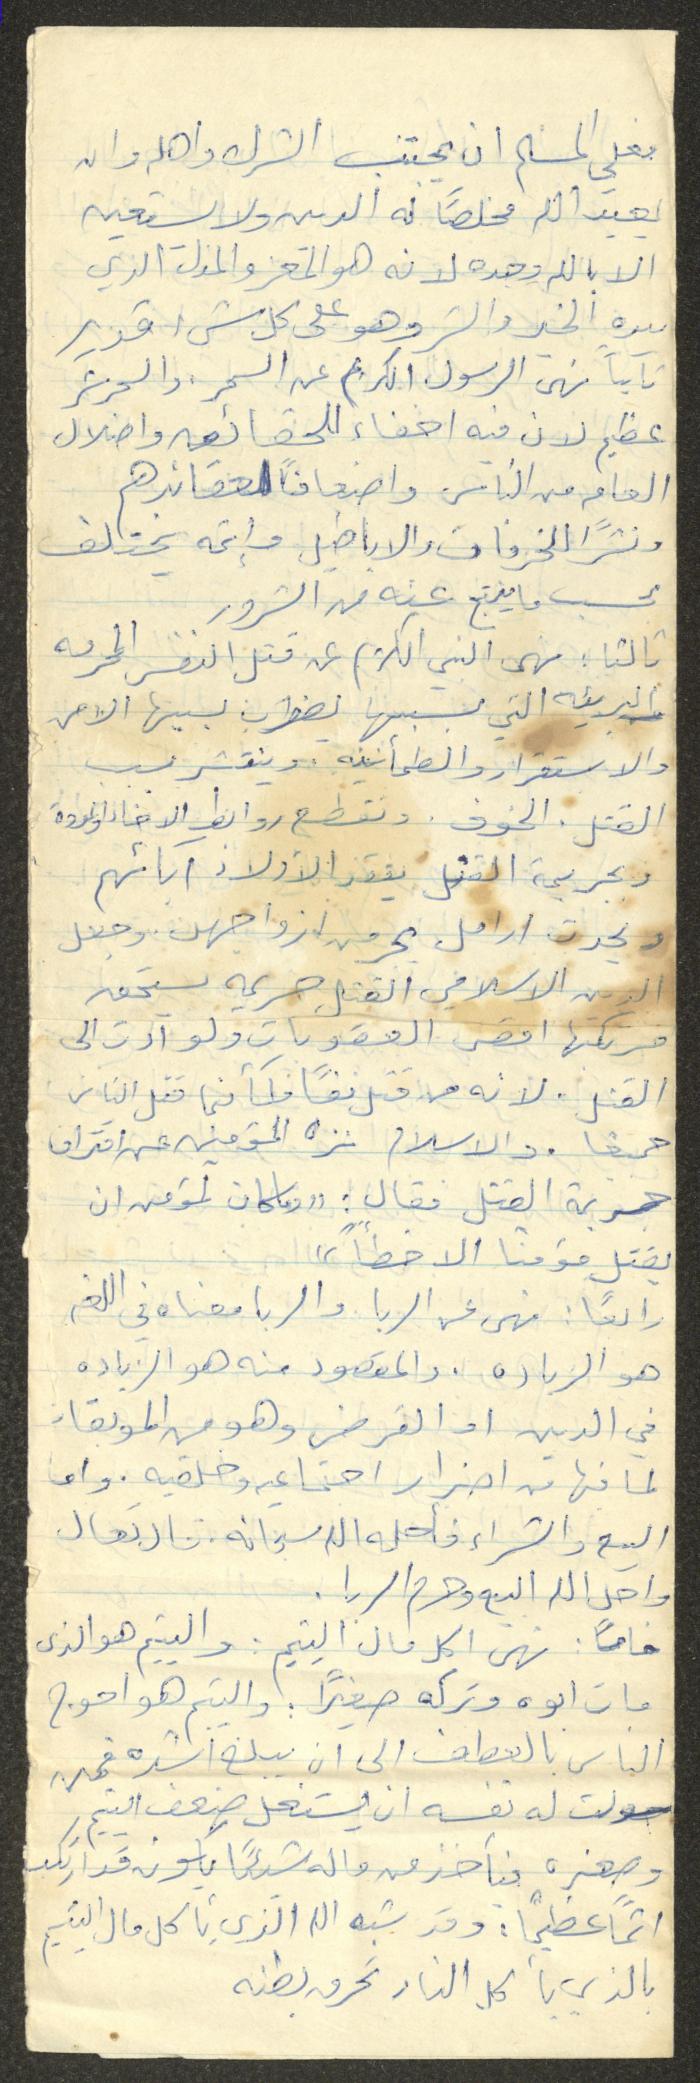 فعلى المسلم ان يجتنب الشرك واهله وان
يعبد الله مخلصًا له الدين ولا يستعين
الا بالله وحده لانه هو المعز والمذل الذي
بيده الخير والشر وهو على كل شيء قدير
ثانياً نهى الرسول الكريم عن السحر. والسحر شر
عظيم لان فيه اخفاء للحقائق واضلال
العام من الناس واضعافًا لعقائدهم
ونشرًا للخرافات والاباطيل وإثمه يختلف
بحسب ما ينتج عنه من الشرور
ثالثا: نهى النبي الكريم عن قتل النفس المحرمه
البريئه التي بسببها يضطرب بسببها الامن
والاستقرار والطمأنينه. وينتشر بسبب
القتل. الخوف. وتقطع روابط الاخاء والمودة
وبجريمة القتل يفقد الأولاد آبائهم
ويحدث ارامل يحرمن ازواجهن. وجعل
الدين الاسلامي القتل جريمه يستحق
مرتكبها اقصى العقوبات ولو ادت الى
القتل. لانه من قتل نفسًا فكأنما قتل الناس
جميعا. والاسلام نزه المؤمنين عن اقتراف
جريمة القتل فقال: "وما كان لمؤمن ان
يقتل مؤمنا الا خطأً"
رابعًا: نهى عن الربا. والربا معناه في اللغه
هو الزياده. والمقصود منه هو الزياده
في الدين او القرض وهو من الموبقات
لما فيها من اضرار اجتماعيه وخلقيه. واما
البيع والشراء فأحله الله سبحانه. قال تعالى
واحل الله البيع وحرم الربا.
خامسًا: نهى اكل مال اليتيم: واليتيم هو الذي
مات ابوه وتركه صغيرًا: واليتيم هو احوج
الناس بالعطف الى ان يبلغ أشده فمن
سولت له نفسه ان يستغل ضعف اليتيم
وصغره فيأخذ من ماله شيئًا يكون قد ارتكب
اثمًا عظيمًا: وقد شبه الله الذي يأكل مال اليتيم
بالذي يأكل النار تحرق بطنه